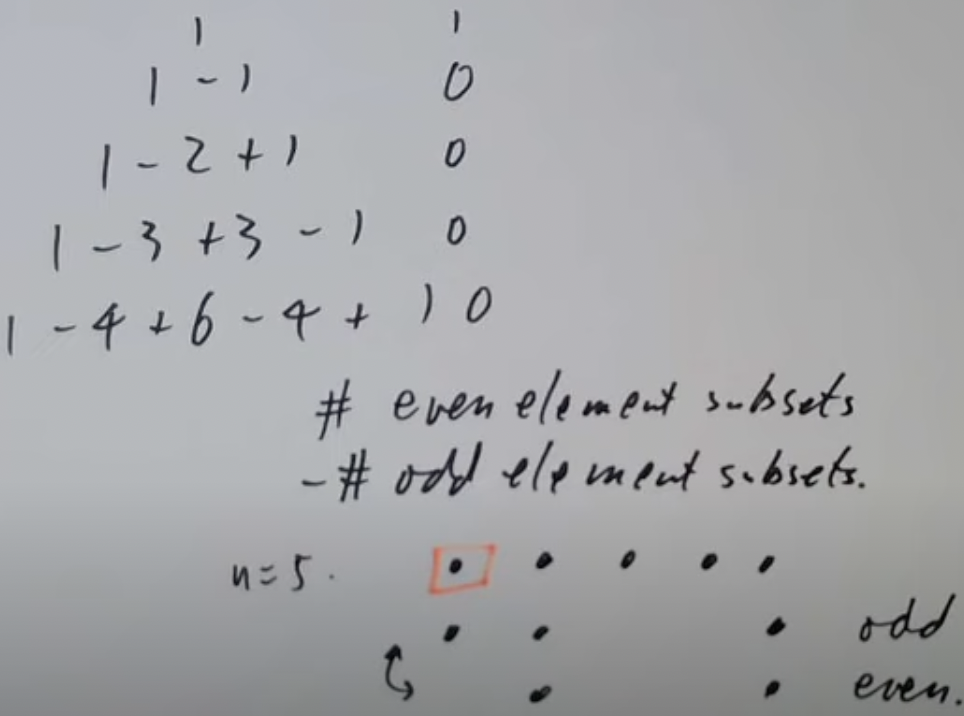 1 1
1 - 1 0
1 - 2 + 1 0
1 - 3 + 3 - 1 0
1 - 4 + 6 - 4 + 1 0
# even element subsets
-# odd element subsets.
n=5.
odd
even.